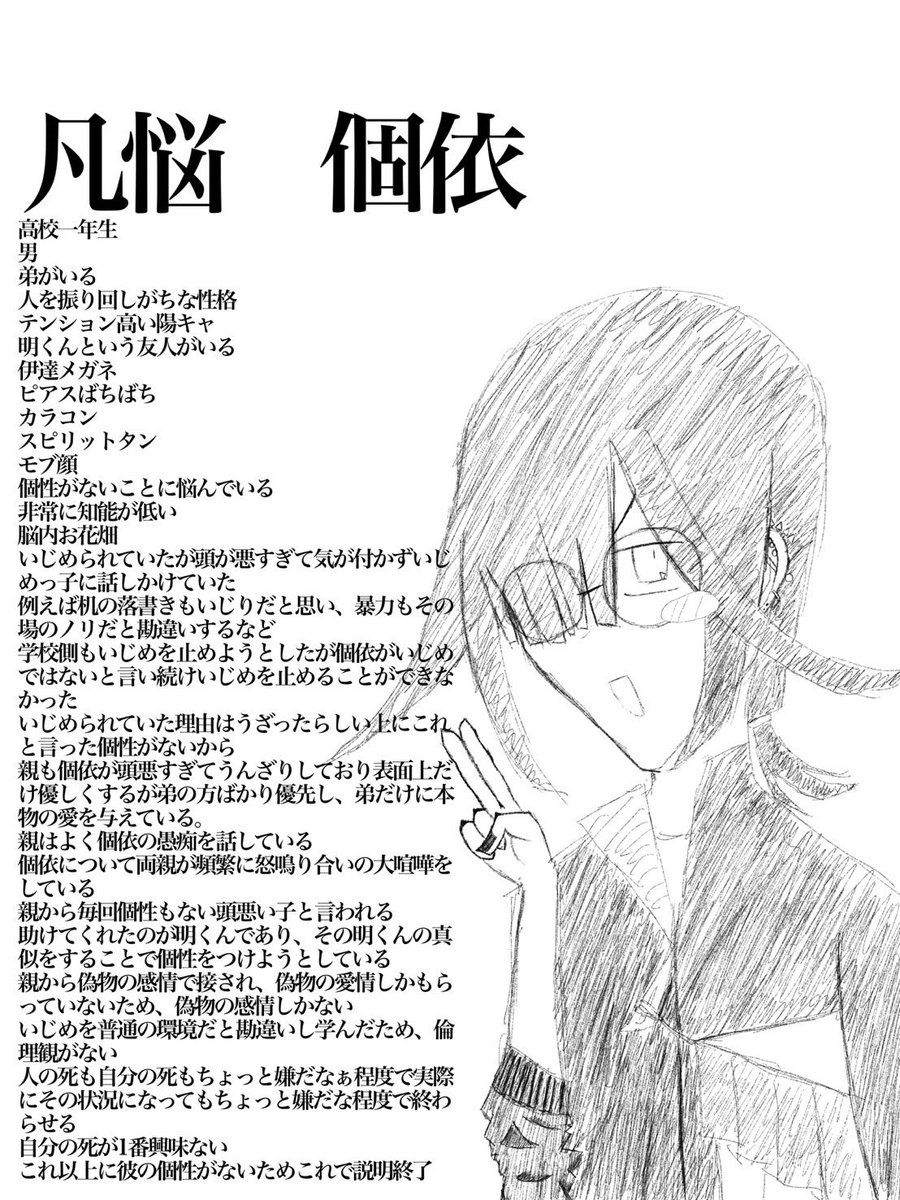 凡悩　個依
高校一年生
男
弟がいる
人を振り回しがちな性格
テンション高い陽キャ
明くんという友人がいる
伊達メガネ
ピアスばちばち
カラコン
スピリットタン
モブ顔
個性がないことに悩んでいる
非常に知能が低い
脳内お花畑
いじめられていたが頭が悪すぎて気が付かずいじ
めっ子に話しかけていた
例えば机の落書きもいじりだと思い、暴力もその
場のノリだと勘違いするなど
学校側もいじめを止めようとしたが個依がいじめ
ではないと言い続けいじめを止めることができな
かった
いじめられていた理由はうざったらしい上にこれ
と言った個性がないから
親も個依が頭悪すぎてうんざりしており表面上だ
け優しくするが弟の方ばかり優先し、弟だけに本
物の愛を与えている。
親はよく個依の愚痴を話している
個依について両親が頻繁に怒鳴り合いの大喧嘩を
している
親から毎回個性もない頭悪い子と言われる
助けてくれたのが明くんであり、その明くんの真
似をすることで個性をつけようとしている
親から偽物の感情で接され、偽物の愛情しかもら
っていないため、偽物の感情しかない
いじめを普通の環境だと勘違いし学んだため、倫
理観がない
人の死も自分の死もちょっと嫌だなぁ程度で実際
にその状況になってもちょっと嫌だな程度で終わ
らせる
自分の死が1番興味ない
これ以上に彼の個性がないためこれで説明終了